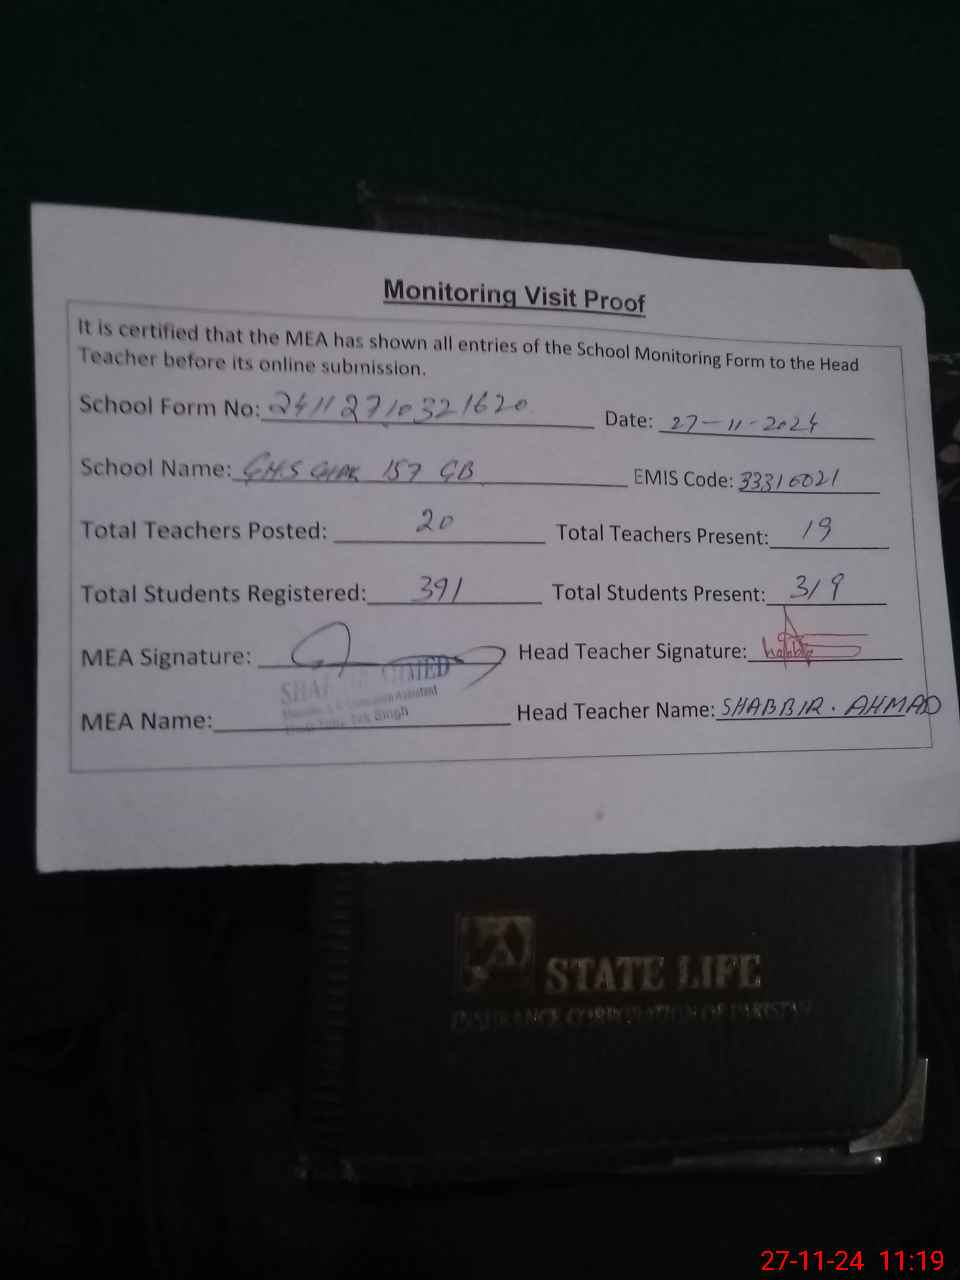 Monitoring Visit Proof
It is certified that the MEA has shown all entries of the School Monitoring Form to the Head
Teacher before its online submission.
School Form No: 24112710321620 Date: 27-11-2024
School Name: GHS CHAK 157 GB EMIS Code: 33316021
Total Teachers Posted: 20 Total Teachers Present: 19
Total Students Registered: 391 Total Students Present: 319
MEA Signature: Head Teacher Signature:
Singh
MEA Name: Head Teacher Name: SHABBIR. AHMAD
STATE LIFE
INSURANCE CORPORATION OF PAKISTAN
27-11-24 11:19